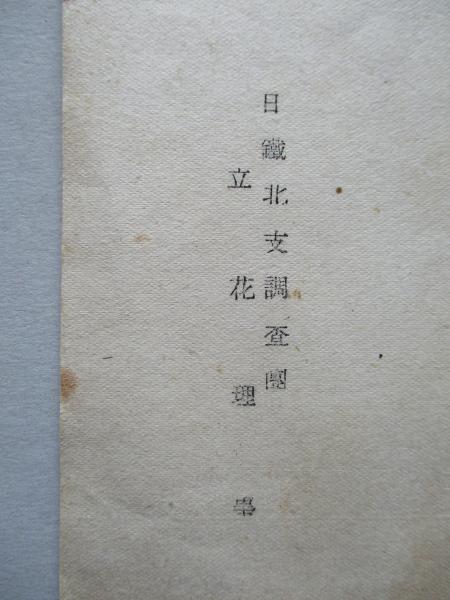 日鐵北支調査團
立花理